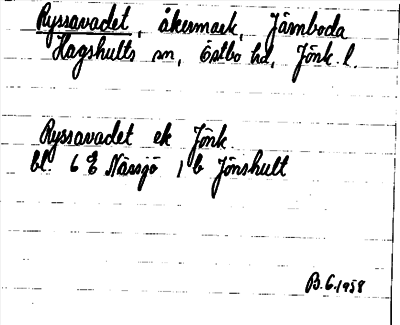 Ryssavadet, åkermark, Järnboda
Hagshults sn, Östbo hd, Jönk. l.
Ryssavadet ek Jönk
bl. 6 E Nässjö 1 b Jönshult
B.G. 1958